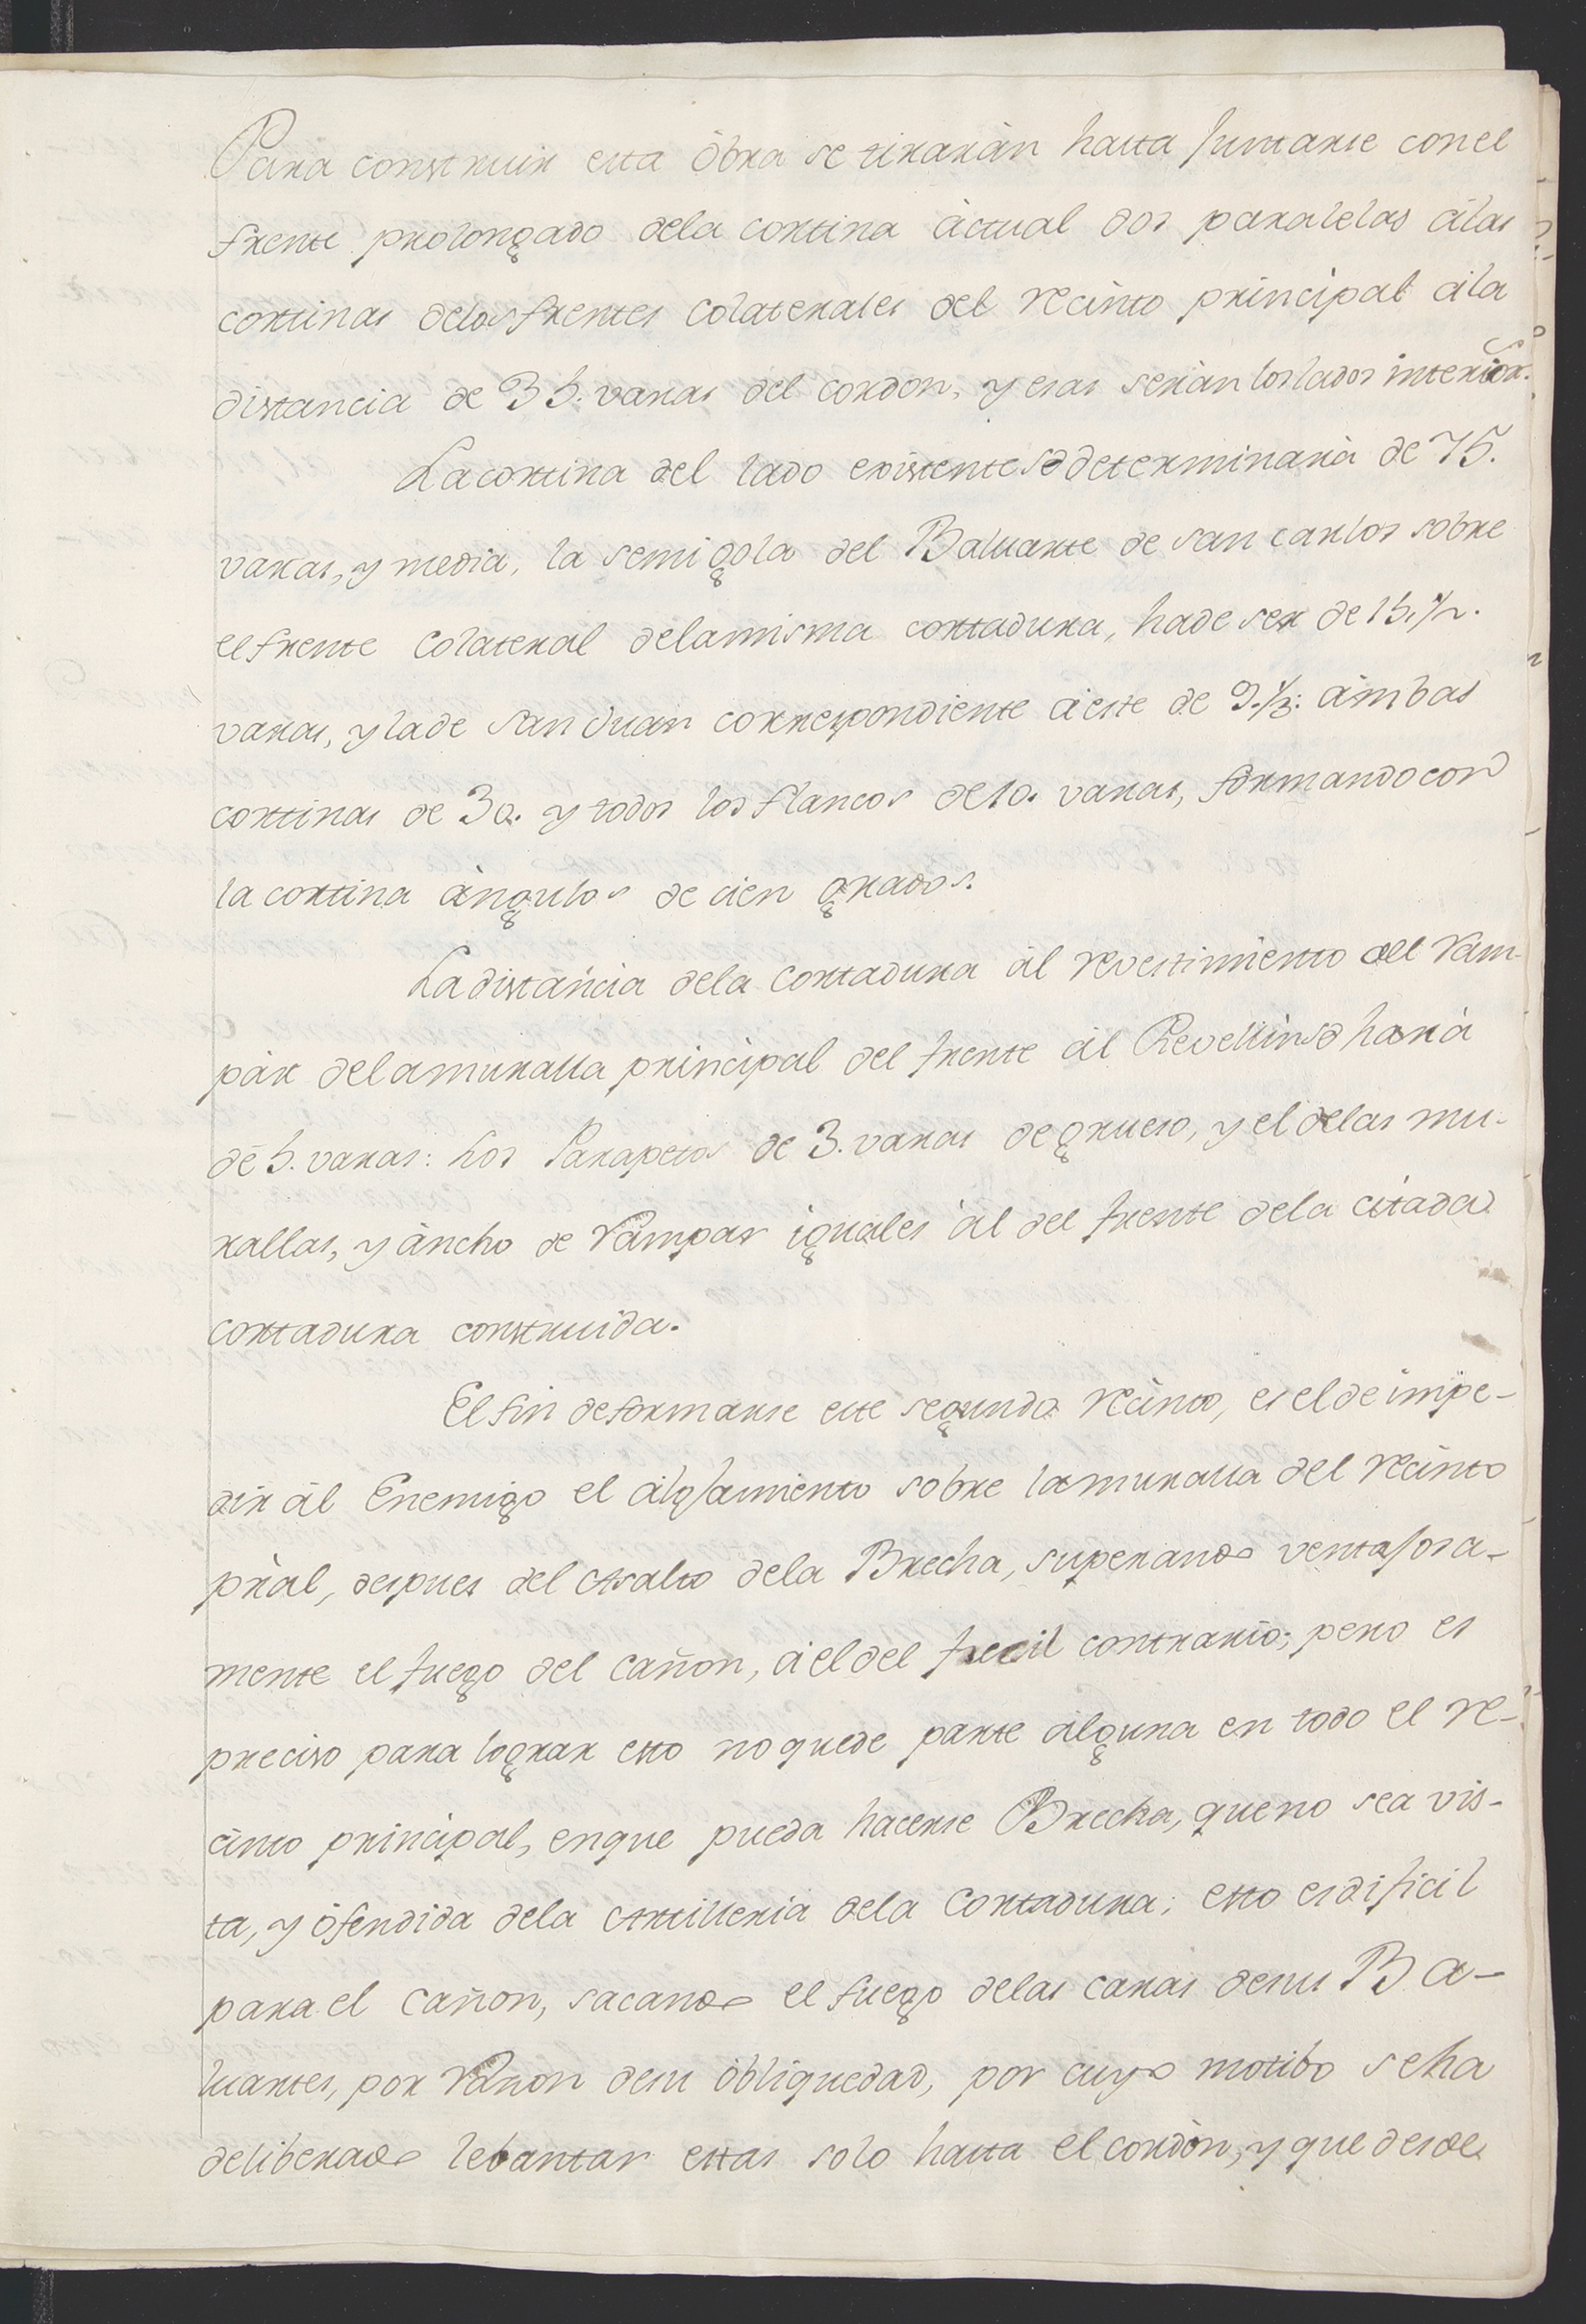 Para construir esta òbra se tiraràn hasta Juntarse con el
frente prolongado dela cortina àctual dos paralelas àlas
cortinas delos frentes Colaterales del recinto principal àla
distancia de 35. varas del cordon, y esas seràn los lados interior.s
La cortina del lado existente se determinarà de 75.
varas, y media, la semigola del Baluarte de san carlos sobre
el frente Colateral dela misma cortadura, hade ser de 15.½.
varas, y la de san Juan correspondiente à este de 9.⅓: àmbas
cortinas de 30. y todos los flancos de 10. varas, formando con
la cortina àngulos de cien grados.
La distancia dela Cortadura àl revestimiento del ram-
pàr dela muralla principal del frente àl Revellin se harà
de 5. varas: Los Parapetos de 3. varas de grueso, y el delas mu-
rallas, y àncho de rampar iguales àl del frente dela citada
cortadura construida.
El fin de formarse este segundo recinto, es el de impe-
dir àl Enemigo el àlojamiento sobre la muralla del recinto
pràl, despues del Asalto dela Brecha, superando ventajosa-
mente el fuego del cañon, à el del fucil contrario; pero es
preciso para lograr esto no quede parte àlguna en todo el re-
cinto principal, en que pueda hacerse Brecha, que no sea vis-
ta, y òfendida dela Artilleria dela Cortadura; esto es dificil
para el cañon, sacando el fuego delas caras de sus Ba-
luartes, por razon de su òbliquedad, por cuyo motibo se ha
deliberado lebantar estas solo hasta el cordòn, y que desde